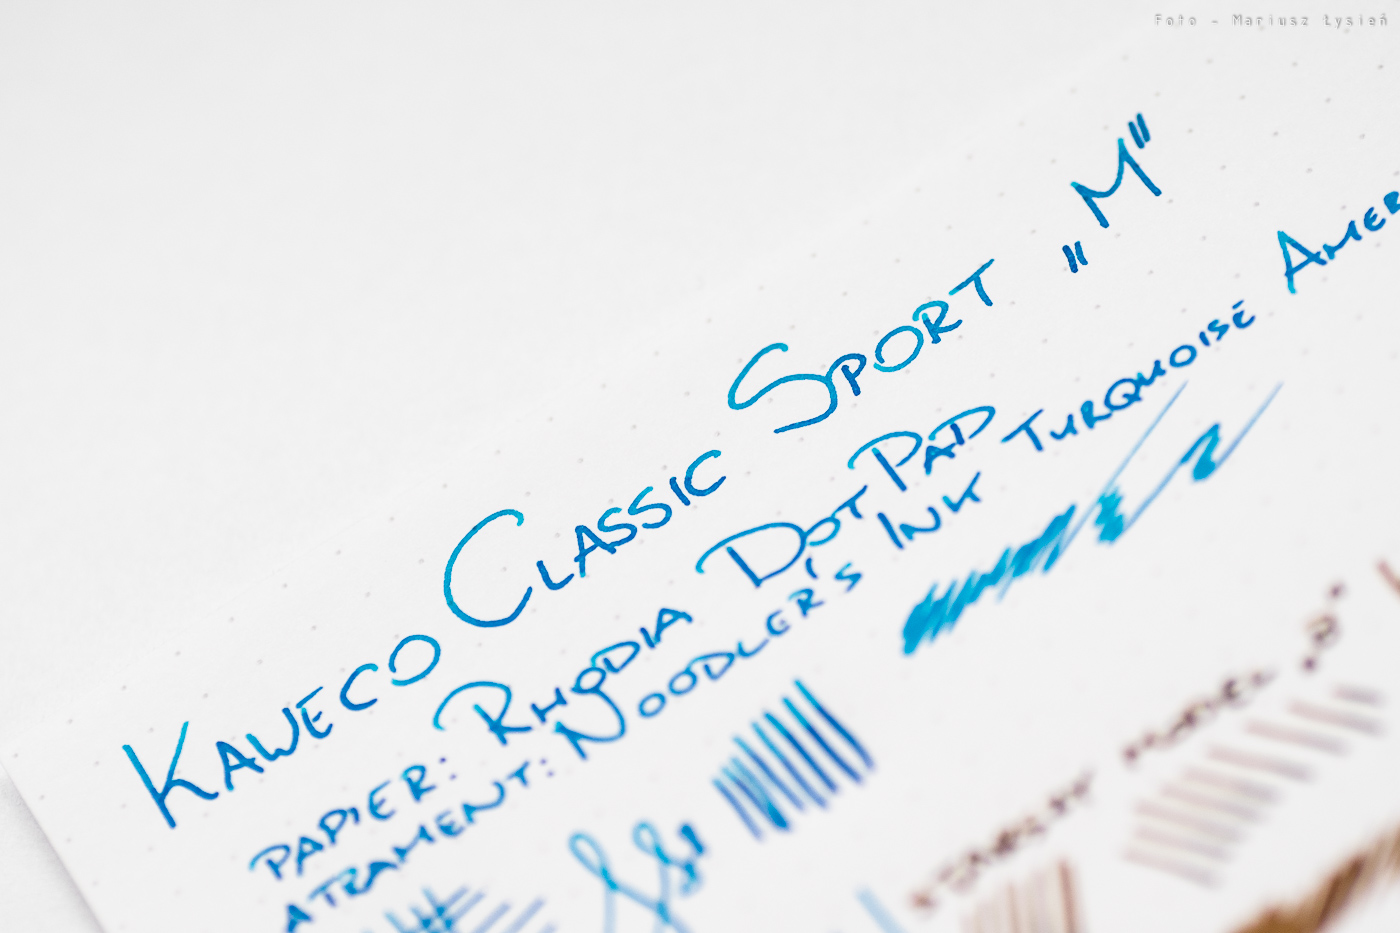 Foto - Mariusz Łysień
Kaweco Classic Sport „M"
Papier: Rhodia Dot Pad
Atrament: Noodler's Ink Turquoise Amer